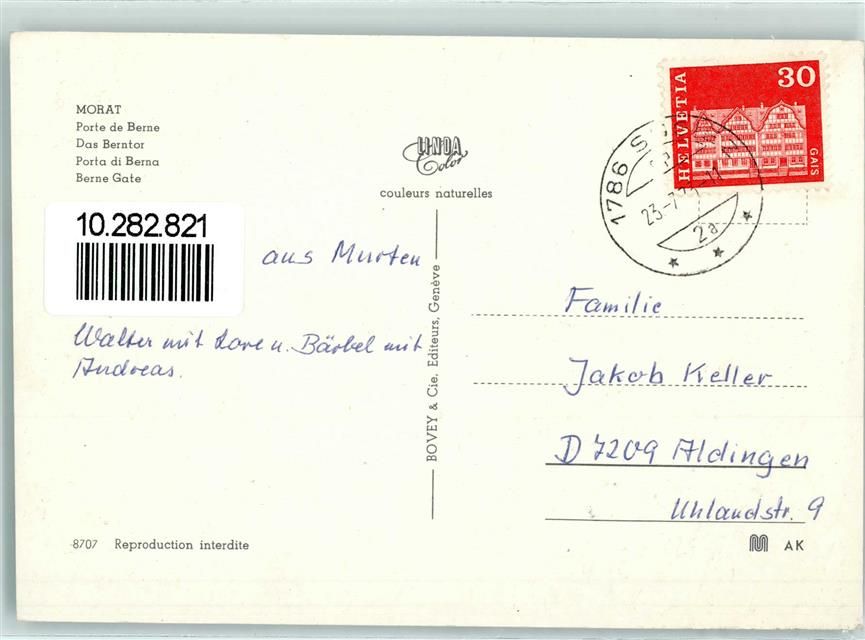 MORAT
Porte de Berne
Das Berntor
Porta di Berna
Berne Gate
LINDA
Color
couleurs naturelles
HELVETIA
30
GAIS
1786
23-7
2a
10.282.821
aus Murten
Walter mit Lore u. Bärbel mit
Andreas.
BOVEY & Cie, Editeurs, Genève
Familie
Jakob Keller
D 7209 Aldingen
Uhlandstr. 9
8707 Reproduction interdite
AK